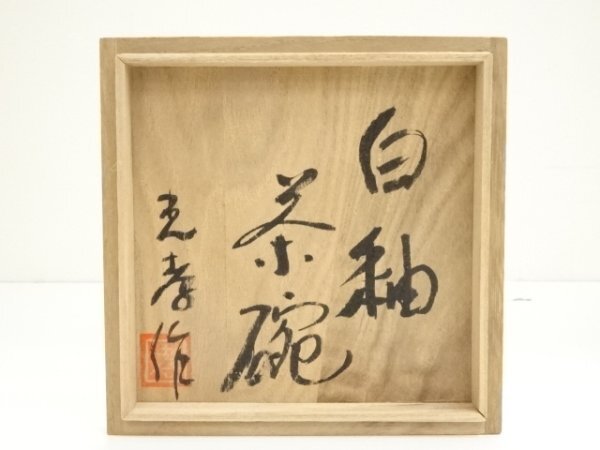 白釉
茶碗
光孝作